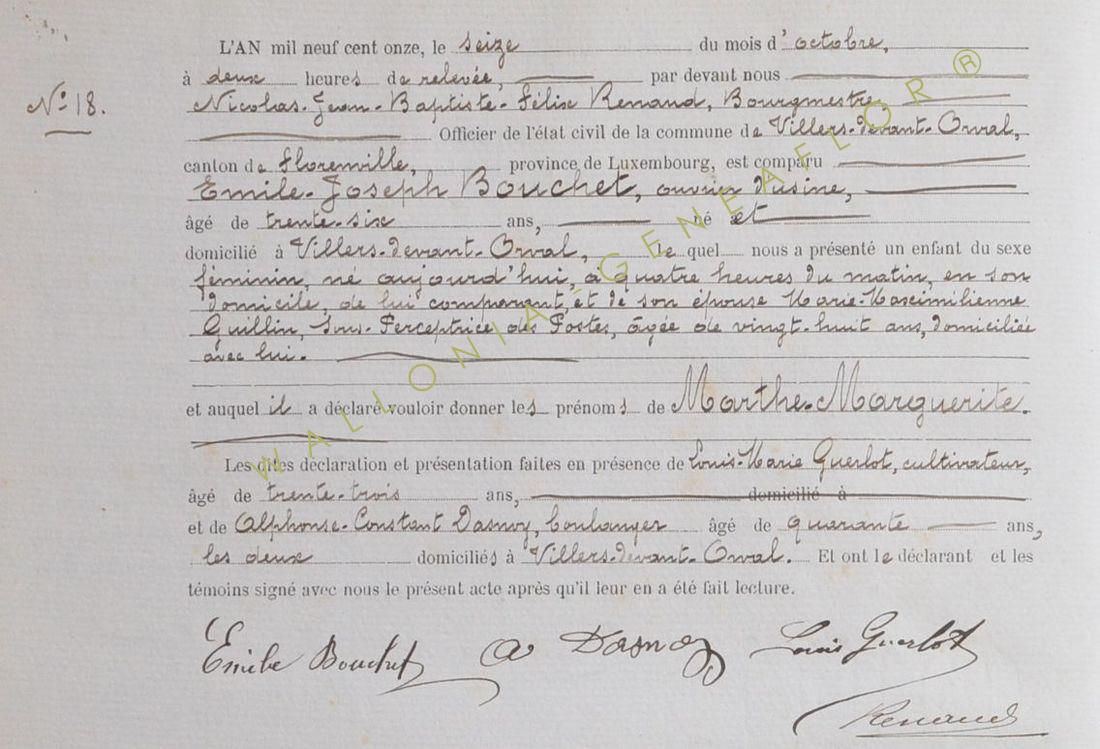 L'AN mil neuf cent onze, le seize du mois d'octobre,
à deux heures de relevée, par devant nous
N° 18.
Nicolas-Jean-Baptiste-Félix Renaud, Bourgmestre,
Officier de l'état civil de la commune de Villers-devant-Orval,
canton de Florenville, province de Luxembourg, est comparu
Emile-Joseph Bouchet, ouvrier d'usine,
âgé de trente-six ans, né et
domicilié à Villers-devant-Orval, le quel nous a présenté un enfant du sexe
féminin, né aujourd'hui, à quatre heures du matin, en son
domicile, de lui comparant, et de son épouse Marie-Maximilienne
Guillin, Sous-Perceptrice des Postes, âgée de vingt-huit ans, domiciliée
avec lui.
et auquel il a déclaré vouloir donner les prénoms de Marthe-Marguerite.
Les dites déclaration et présentation faites en présence de Louis-Marie Guerlot, cultivateur,
âgé de trente-trois ans, domicilié à
et de Alphonse-Constant Dasnoy, boulanger âgé de quarante ans,
les deux domiciliés à Villers-devant-Orval. Et ont le déclarant et les
témoins signé avec nous le présent acte après qu'il leur en a été fait lecture.
Emile Bouchet A Dasnoy Louis Guerlot
Renaud
WALLONIA-GENEAFLOR ®